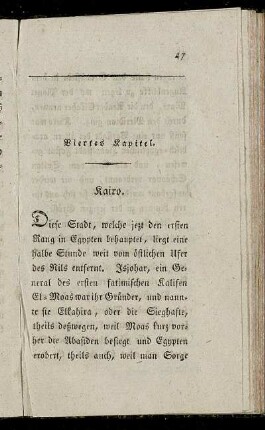 27
Viertes Kapitel.
Kairo.
Diese Stadt, welche jezt den ersten
Rang in Egypten behauptet, liegt eine
halbe Stunde weit vom östlichen Ufer
des Nils entfernt. Isjohar, ein Ge-
neral des ersten fatimischen Kalifen
El-Moas war ihr Gründer, und nann-
te sie Elkahira, oder die Sieghafte,
theils deßwegen, weil Moas kurz vor-
her die Abasiden besiegt und Egypten
erobert, theils auch, weil man Sorge